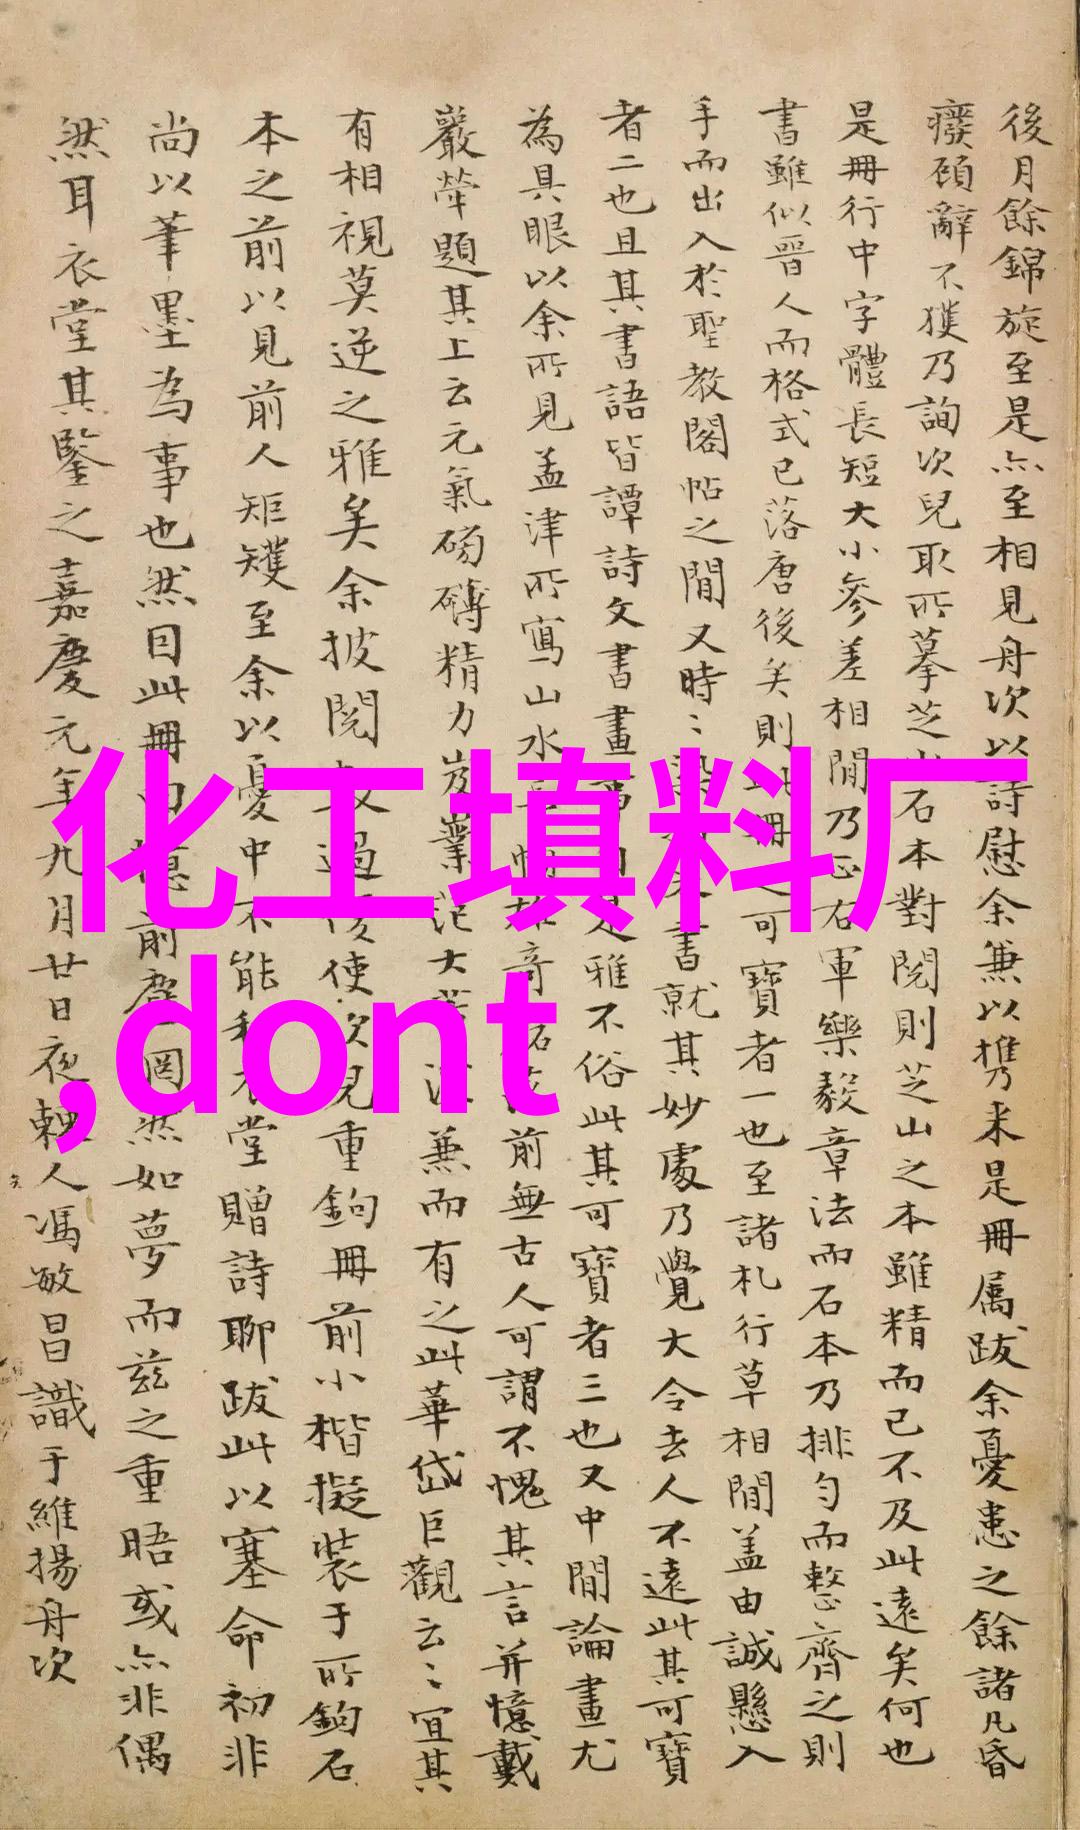 後月餘錦旋至是亦至相見舟次以詩慰余兼以携来是冊属跋余憂患之餘諸凡昏
癈頋辭不獲乃詢次兒取所摹芝山石本對閱則芝山之本雖精而已不及此遠矣何也
是冊行中字體長短大小參差相間乃正右軍樂毅章法而石本乃排勻而整齊之則
書雖似晋人而格式已落唐後矣則此冊之可寶者一也至諸札行草相間盖由誠懸入
手而出入於聖教閣帖之間又時〻染書就其妙處乃覺大令去人不遠此其可寶
者二也且其書語皆譚詩文書畫是雅不俗此其可寶者三也又中間論畫尤
為具眼以余所見孟津所寫山水雄奇前無古人可謂不愧其言并憶戴
巖犖題其上云元氣磅礴精力岌嶪大兼而有之此華岱巨觀云〻宜其
有相視莫逆之雅矣余披閱過後使次兒重鉤冊前小楷擬裝于所鉤石
本之前以見前人矩矱至余以憂中不能和衣堂贈詩聊跋此以塞命初非
尚以筆墨為事也然因此冊而憶前塵罔然如夢而兹之重晤或亦非偶
然耳衣堂其鑒之嘉慶元年九月廿日夜棘人馮敏昌識于維揚舟次
化工填料厂
,dont